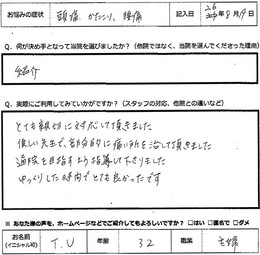 お悩みの症状 頭痛、かたこり、腰痛 記入日 26年8月19日
Q. 何が決め手となって当院を選びましたか？（他院ではなく、当院を選んでくださった理由）
紹介
Q. 実際にご利用してみていかがですか？（スタッフの対応、他院との違いなど）
とても親切に対応して頂きました
優しい先生で、部分的に痛い所を治して頂きました
通院を目指すよう指導して下さりました
ゆっくりした時間でとても良かったです
※ あなた様の声を、ホームページなどでご紹介してもよろしいですか？ □はい □匿名で □ダメ
お名前（イニシャル可） T.U 年齢 32 職業 主婦